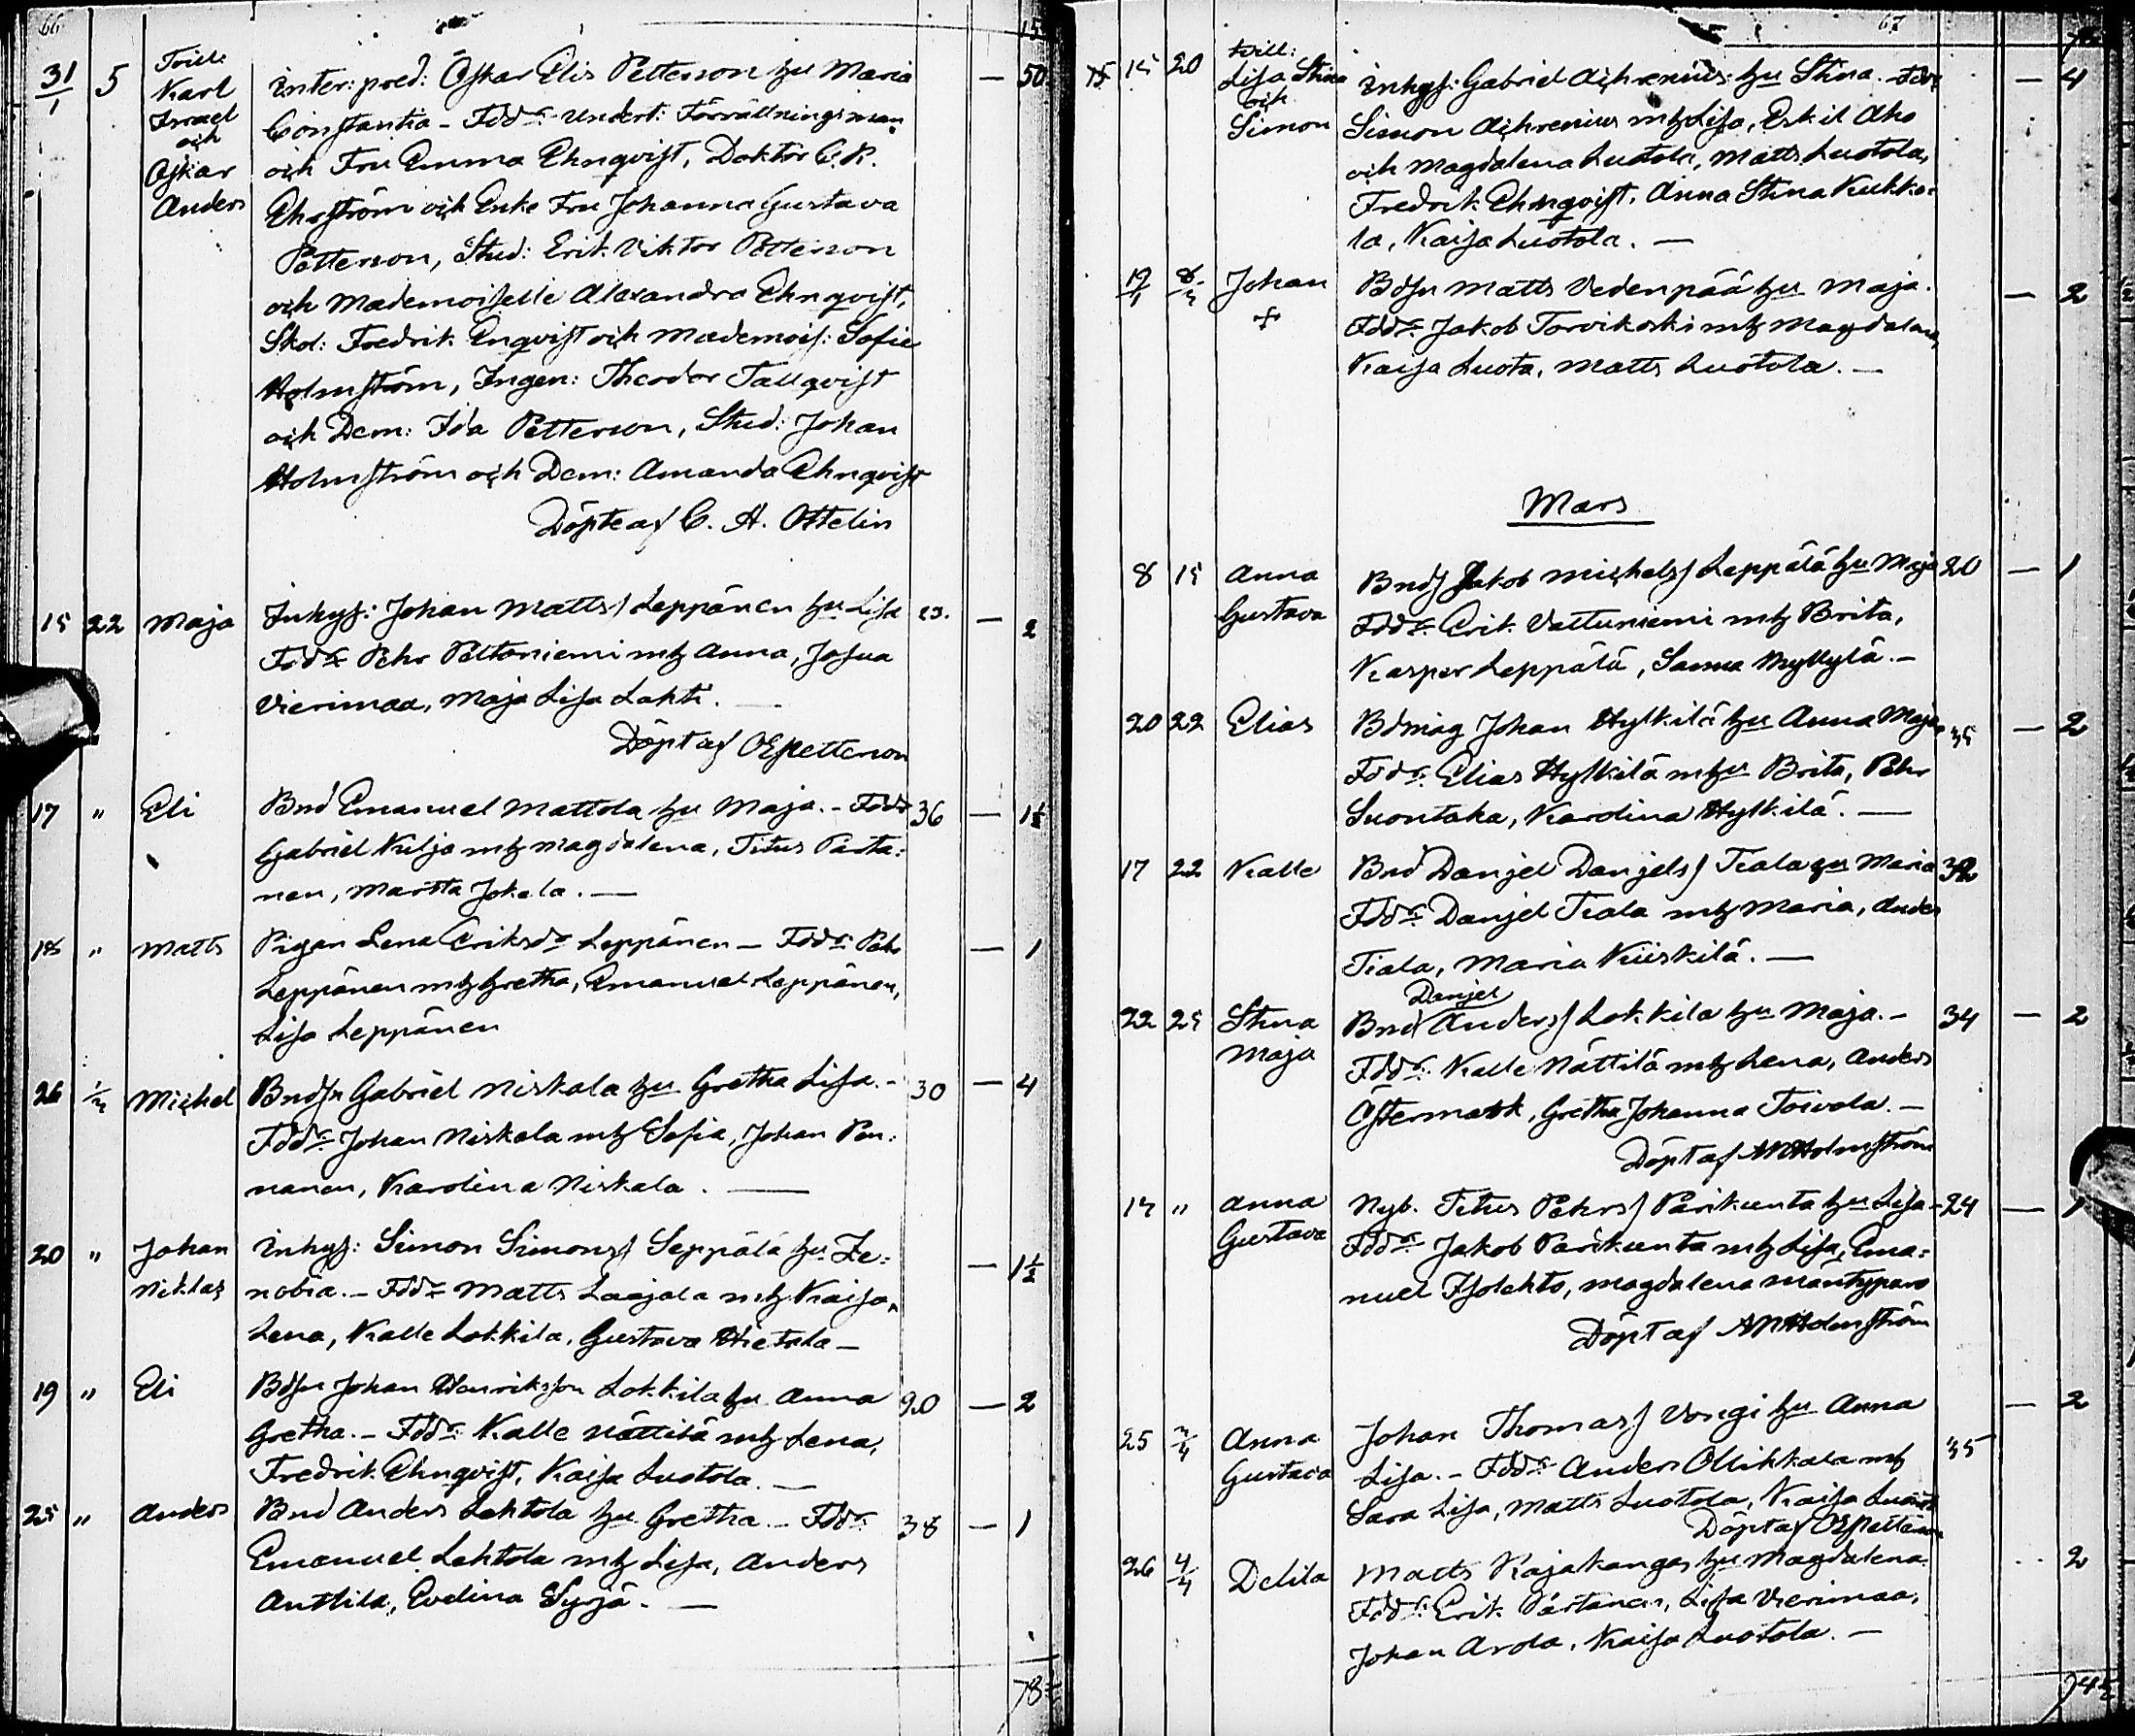 66
15
31/1 5 Trill: Karl Israel och Oskar Anders
Inter: pred: Oskar Elis Petterson hu Maria — 50
Constantia – Fddr Undert: Förrättningsman
och Fru Emma Ehnqvist, Doktor C. R.
Ehrström och Enke Fru Johanna Gustava
Petterson, Stud: Erik Viktor Petterson
och Mademoiselle Alexandra Ehnqvist,
Skol: Fredrik Enqvist och Mademois: Sofie
Holmström, Ingen: Theodor Tallqvist
och Dem: Ida Petterson, Stud: Johan
Holmström och Dem: Amanda Ehnqvist
Döpte af C. A. Ottelin
15 22 Maja Inhys: Johan Matts/ Leppänen hu Lisa 23. — 2
Fddr Pehr Peltoniemi mh Anna, Josua
Vierimaa, Maja Lisa Lahti. —
Döpt af OEPetterson
17 " Eli Bnd Emanuel Mattola hu Maja. – Fddr 36 — 1½
Gabriel Kilja mh Magdalena, Titus Parta:
nen, Martta Jokela. —
18 " Matts Pigan Lena Eriksdr Leppänen – Fddr Pehr — 1
Leppänen mh Gretha, Emanuel Leppänen,
Lisa Leppänen
26 1/3 Michel Bndsn Gabriel Niskala hu Gretha Lisa. – 30 — 4
Fddr Johan Niskala mh Sofia, Johan Pen:
nanen, Karolina Niskala. —
20 " Johan Niklas Inhys: Simon Simons/ Seppälä hu Ze: — 1½
nobia. – Fddr Matts Laajala mh Kaisa,
Lena, Kalle Lokkila, Gustava Hietala –
19 " Eli Bdsn Johan Henriksson Lokkila hu Anna 20 — 2
Gretha. – Fddr Kalle Nättilä mh Lena,
Fredrik Ehnqvist, Kaisa Luotola. —
25 " Anders Bnd Anders Lehtola hu Gretha – Fddr 38 — 1
Emanuel Lehtola mh Lisa, Anders
Anttila, Evelina Syrjä. —
78
67
15 20 Tvill: Lisa Stina och Simon
Inhys: Gabriel Achrenius hu Stina. – Fddr — 4
Simon Achrenius mh Lisa, Eskil Aho
och Magdalena Luotola, Matts Luotola,
Fredrik Ehnqvist, Anna Stina Kukko:
la, Kaisa Luotola. —
19/1 8/3 Johan Bdsn Matts Vedenpää hu Maja. — 2
Fddr Jakob Torvikoski mh Magdalena,
Kaisa Luota, Matts Luotola. —
Mars
8 15 Anna Gustava Bnd/ Jakob Michels/ Leppälä hu Maja 20 — 1
Fddr Erik Vattuniemi mh Brita,
Kasper Leppälä, Sanna Myllylä. –
20 22 Elias Bdmåg Johan Hylkilä hu Anna Maja 35 — 2
Fddr Elias Hylkilä mhu Brita, Pehr
Suontaka, Karolina Hylkilä. —
17 22 Kalle Bnd Danjel Danjels/ Tiala hu Maria 32
Fddr Danjel Tiala mh Maria, Anders
Tiala, Maria Kiiskilä. —
Danjel
22 25 Stina Maja Bnd Anders/ Lokkila hu Maja. – 34 — 2
Fddr Kalle Nättilä mh Lena, Anders
Östermark, Gretha Johanna Toivola. –
Döpt af Holmström
14 " Anna Gustava Nyb. Titus Pehrs/ Parikunta hu Lisa – 24 — 1
Fddr Jakob Parikunta mh Lisa, Ema:
nuel Isolehto, Magdalena Mäntyparo
Döpt af Holmström
25 2/4 Anna Gustava Johan Thomas/ Vongi hu Anna 35 — 2
Lisa. – Fddr Anders Ollikkala mh
Sara Lisa, Matts Luotola, Kaisa Luotola
Döpt af OEPetterson
26 4/4 Delila Matts Rajakangas hu Magdalena 2
Fddr Erik Partanen, Lisa Vierimaa,
Johan Arola, Kaisa Luotola. —
74½